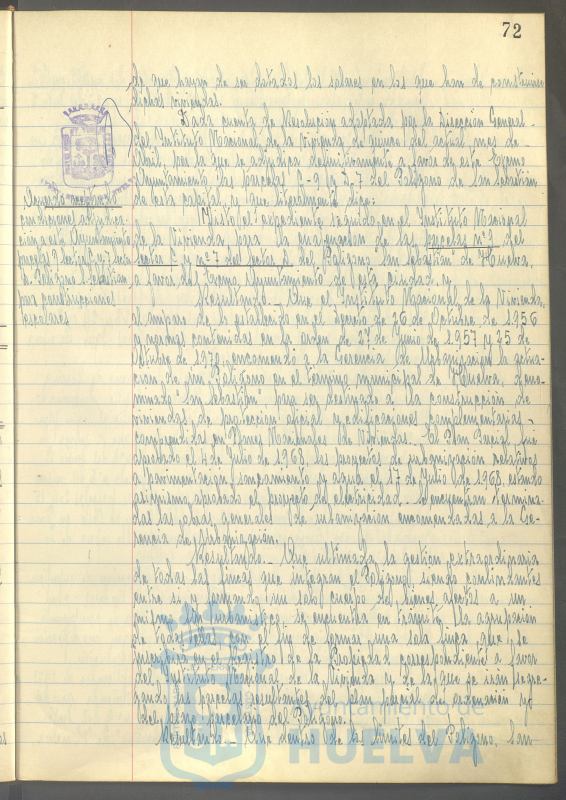 72
de que hayan de ser dotados los solares en los que han de construirse
dichas viviendas.
Dada cuenta de Resolución adoptada por la Dirección General
del Instituto Nacional de la Vivienda de quince del actual mes de
Abril, por la que se adjudica definitivamente a favor de este Excmo
Ayuntamiento las parcelas C-9 y D-7 del Polígono de San Sebastián
de esta capital, y que literalmente dice:
Acuerdo
condiciones adjudica-
ción a este Ayuntamiento
parcelas 9 sector C y 7 sector
D. Polígono S. Sebastián
para construcciones
escolares
"Visto el expediente seguido en el Instituto Nacional
de la Vivienda, para la enajenación de las parcelas nº 9 del
sector C y nº 7 del sector D del Polígono "San Sebastián" de Huelva,
a favor del Excmo Ayuntamiento de esta ciudad, y
Resultando.- Que el Instituto Nacional de la Vivienda,
al amparo de lo establecido en el Decreto de 26 de Octubre de 1956
y normas contenidas en la orden de 27 de Junio de 1957 y 25 de
Octubre de 1970, encomendó a la Gerencia de Urbanización la actua-
ción de un Polígono en el término municipal de Huelva, deno-
minado "San Sebastián" para ser destinado a la construcción de
viviendas de protección oficial y edificaciones complementarias
comprendidas en Planes Nacionales de Viviendas. El Plan Parcial fué
aprobado el 4 de Julio de 1968, los proyectos de urbanización relativos
a pavimentación, saneamiento y agua el 17 de Julio de 1968, estando
asimismo aprobado el proyecto de electricidad. Se encuentran termina-
das las obras generales de urbanización encomendadas a la Ge-
rencia de Urbanización.
Resultando.- Que ultimada la gestión extraordinaria
de todas las fincas que integran el Polígono, siendo colindantes
entre sí y formando un solo cuerpo de bienes afectos a un
mismo fin urbanístico, se encuentra en trámite la agrupación
de todas ellas, con el fin de formar una sola finca, que se
inscribirá en el Registro de la Propiedad correspondiente a favor
del Instituto Nacional de la Vivienda y de la que se irán segre-
gando las parcelas resultantes del plan parcial de extensión y
del plano parcelario del Polígono.
Resultando.- Que dentro de los límites del Polígono "San
Ayuntamiento de
HUELVA